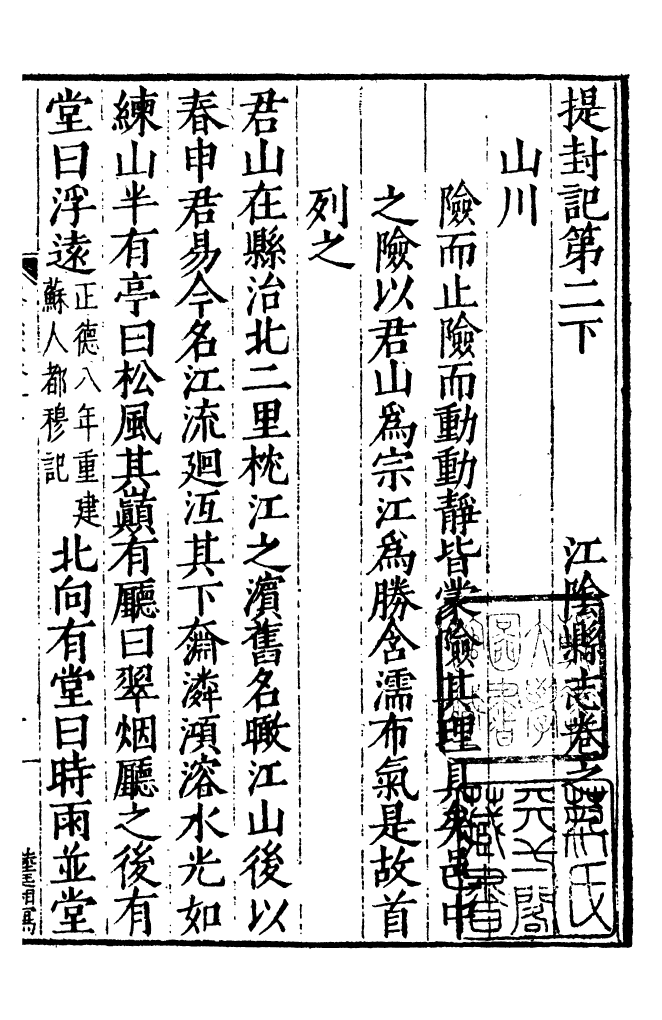 提封記第二下　江陰縣志卷之
山川
險而止險而動動靜皆蒙險其理具矣邑中
之險以君山爲宗江爲勝含濡布氣是故首
列之
君山在縣治北二里枕江之濱舊名瞰江山後以
春申君易今名江流廻沍其下奫潾澒溶水光如
練山半有亭曰松風其巔有廳曰翠烟廳之後有
堂曰浮遠正德八年重建蘇人都穆記北向有堂曰時雨並堂
范氏天一閣藏書
大學圖書